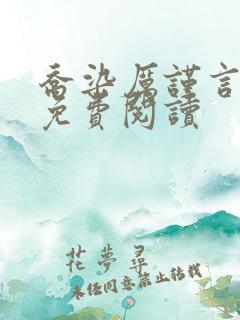 喬染厲謹言
免費閱讀
花夢尋
未經同意禁止轉載